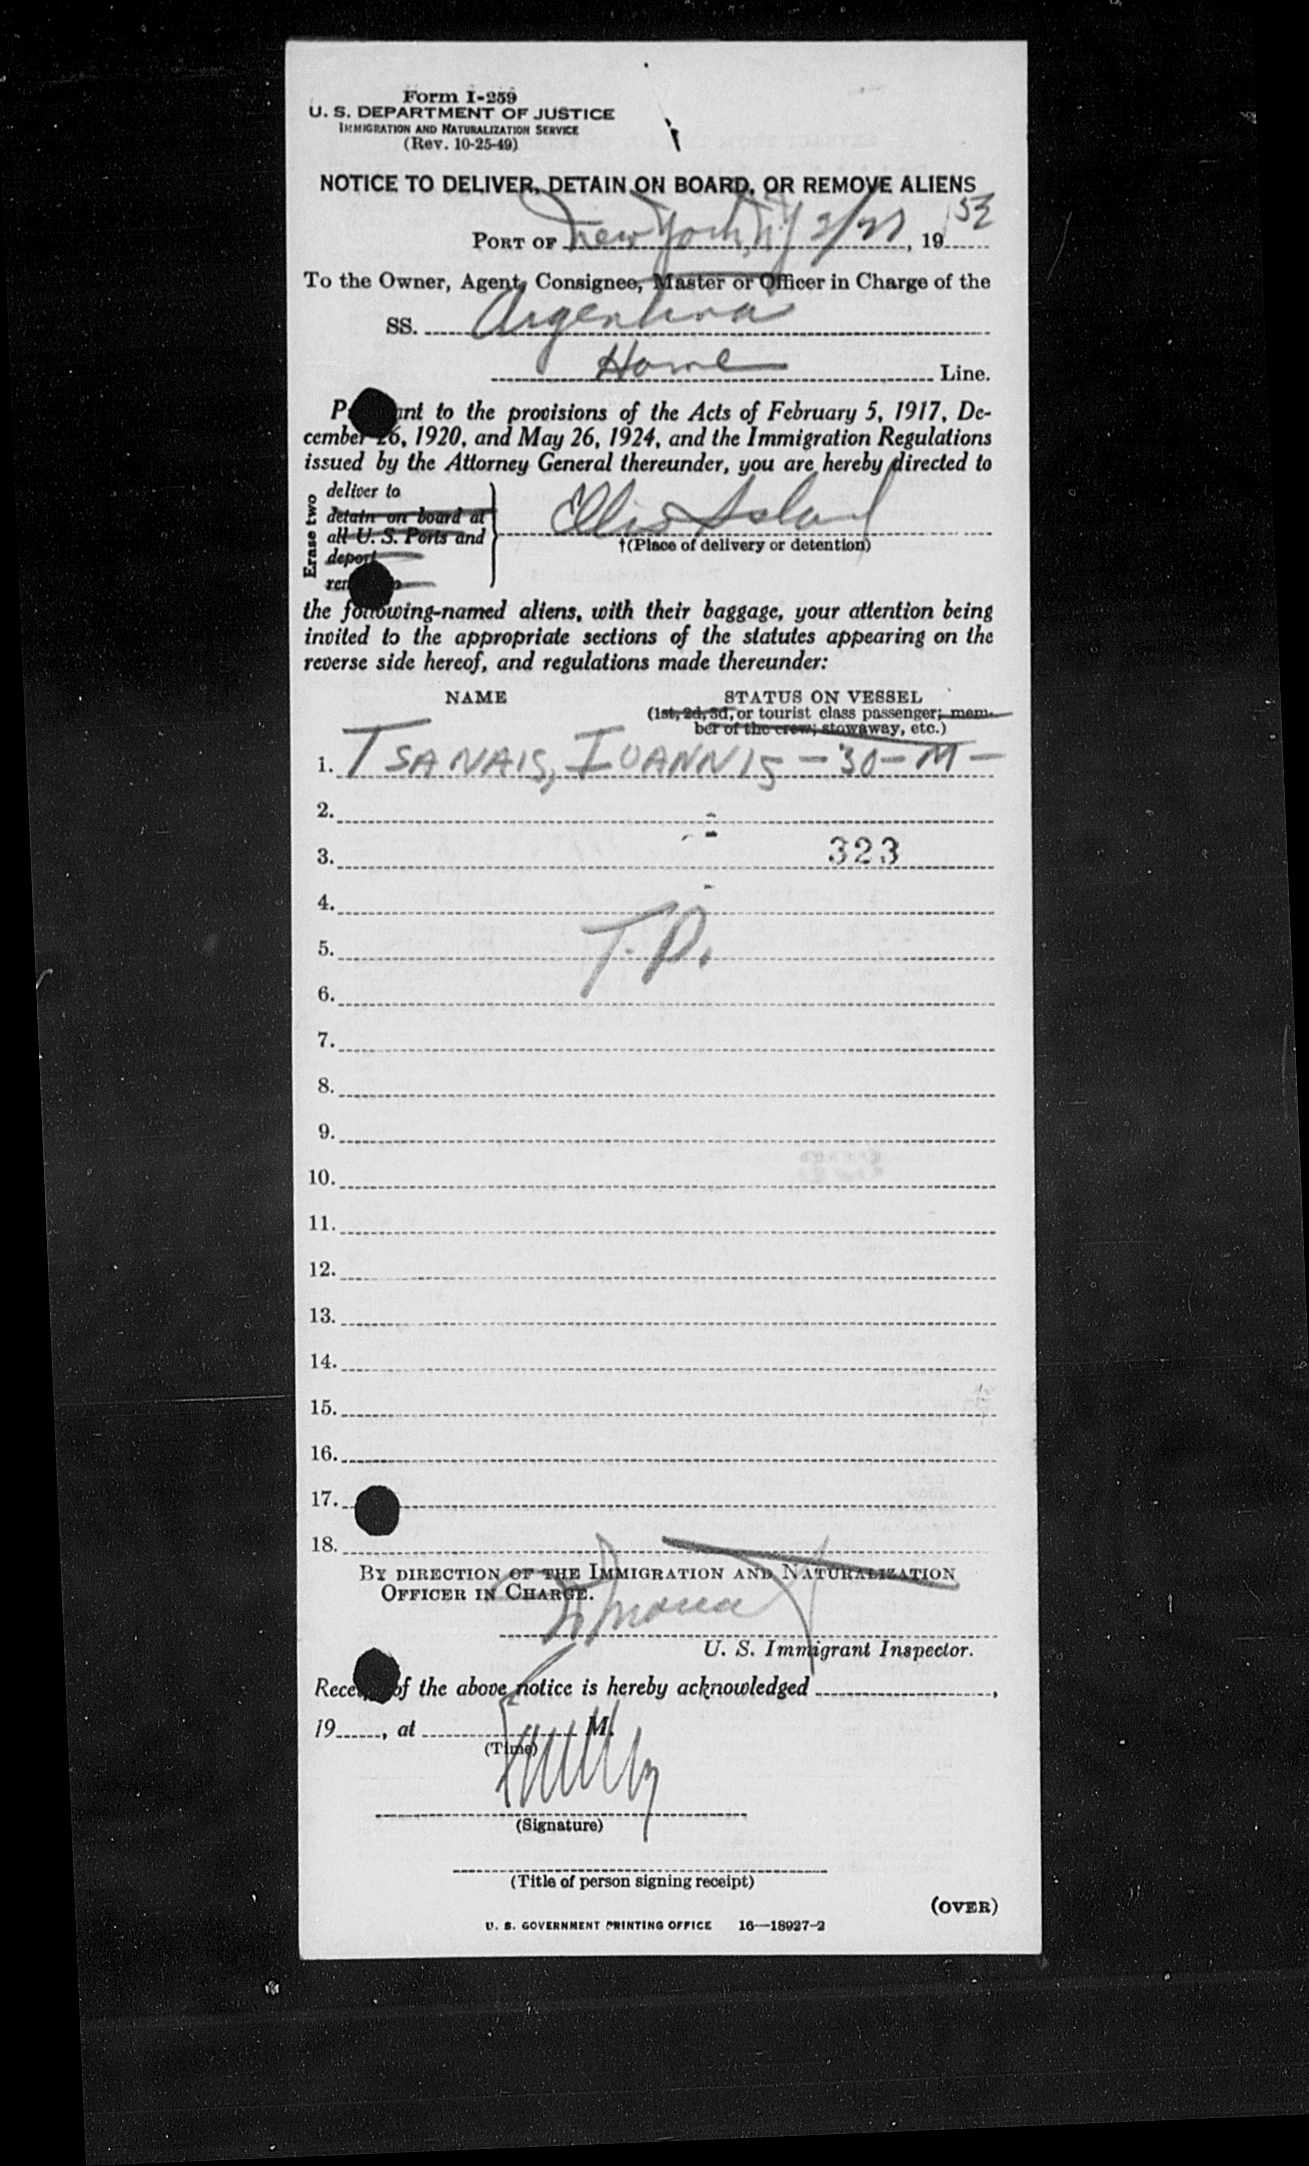 Form I-259
U. S. DEPARTMENT OF JUSTICE
IMMIGRATION AND NATURALIZATION SERVICE
(Rev. 10-25-49)
NOTICE TO DELIVER, DETAIN ON BOARD, OR REMOVE ALIENS
PORT OF New York, N.Y. 2/27, 1953
To the Owner, Agent, Consignee, Master or Officer in Charge of the
SS. Argentina
Home Line.
P ant to the provisions of the Acts of February 5, 1917, De-
cember 26, 1920, and May 26, 1924, and the Immigration Regulations
issued by the Attorney General thereunder, you are hereby directed to
Erase two
deliver to
detain on board at
all U. S. Ports and
deport
Ellis Island
†(Place of delivery or detention)
the following-named aliens, with their baggage, your attention being
invited to the appropriate sections of the statutes appearing on the
reverse side hereof, and regulations made thereunder:
NAME STATUS ON VESSEL
(1st, 2d, 3d, or tourist class passenger; mem-
ber of the crew; stowaway, etc.)
1. TSANAIS, IOANNIS - 30 - M -
2.
3. 323
4.
5. T.D.
6.
7.
8.
9.
10.
11.
12.
13.
14.
15.
16.
17.
18.
BY DIRECTION OF THE IMMIGRATION AND NATURALIZATION
OFFICER IN CHARGE.
U. S. Immigrant Inspector.
Rece of the above notice is hereby acknowledged ,
19 , at M.
(Time)
(Signature)
(Title of person signing receipt)
(OVER)
U. S. GOVERNMENT PRINTING OFFICE 16—18927-2